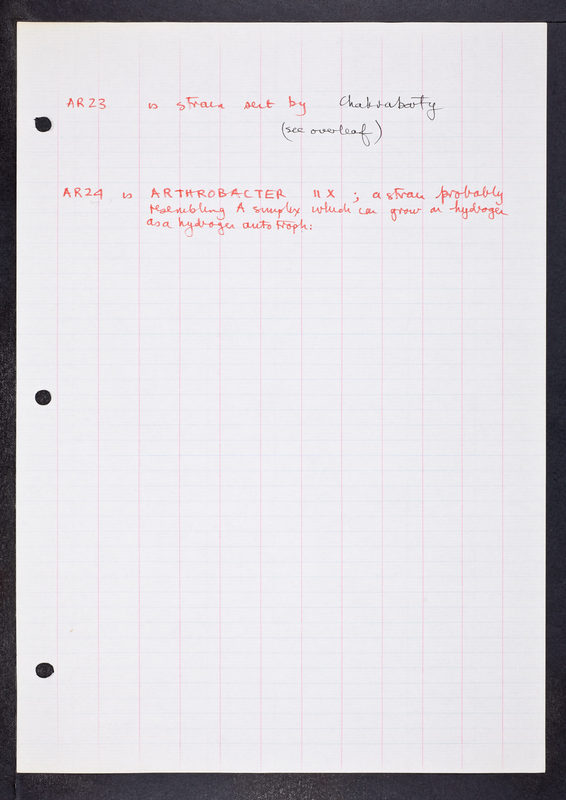 AR23 is strain sent by Chakraborty
(see overleaf)
AR24 is ARTHROBACTER 11X ; a strain probably
resembling A simplex which can grow on hydrogen
as a hydrogen autotroph.